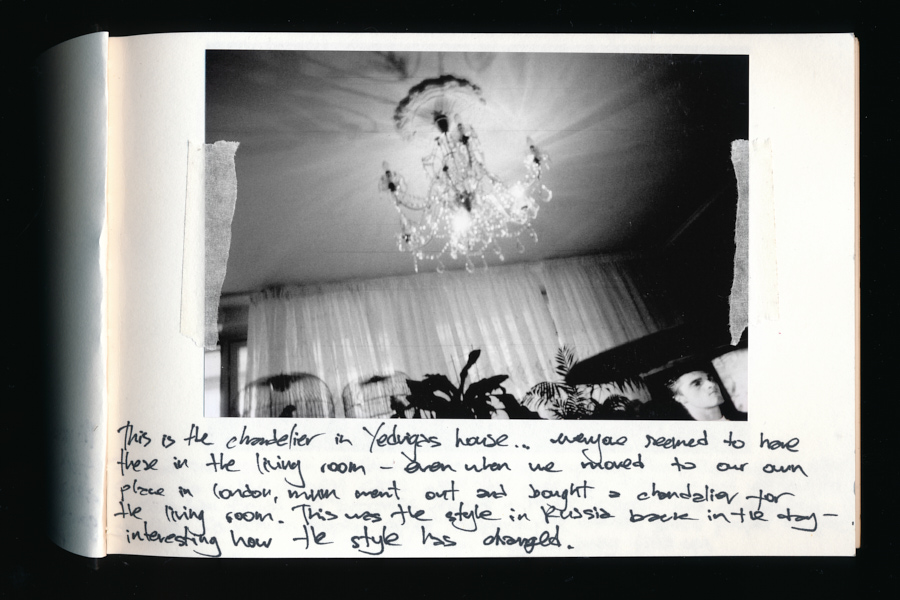 This is the chandelier in Yedvigas house.. everyone seemed to have
these in the living room – even when we moved to our own
place in London, mum went out and bought a chandelier for
the living room. This was the style in Russia back in the day –
interesting how the style has changed.